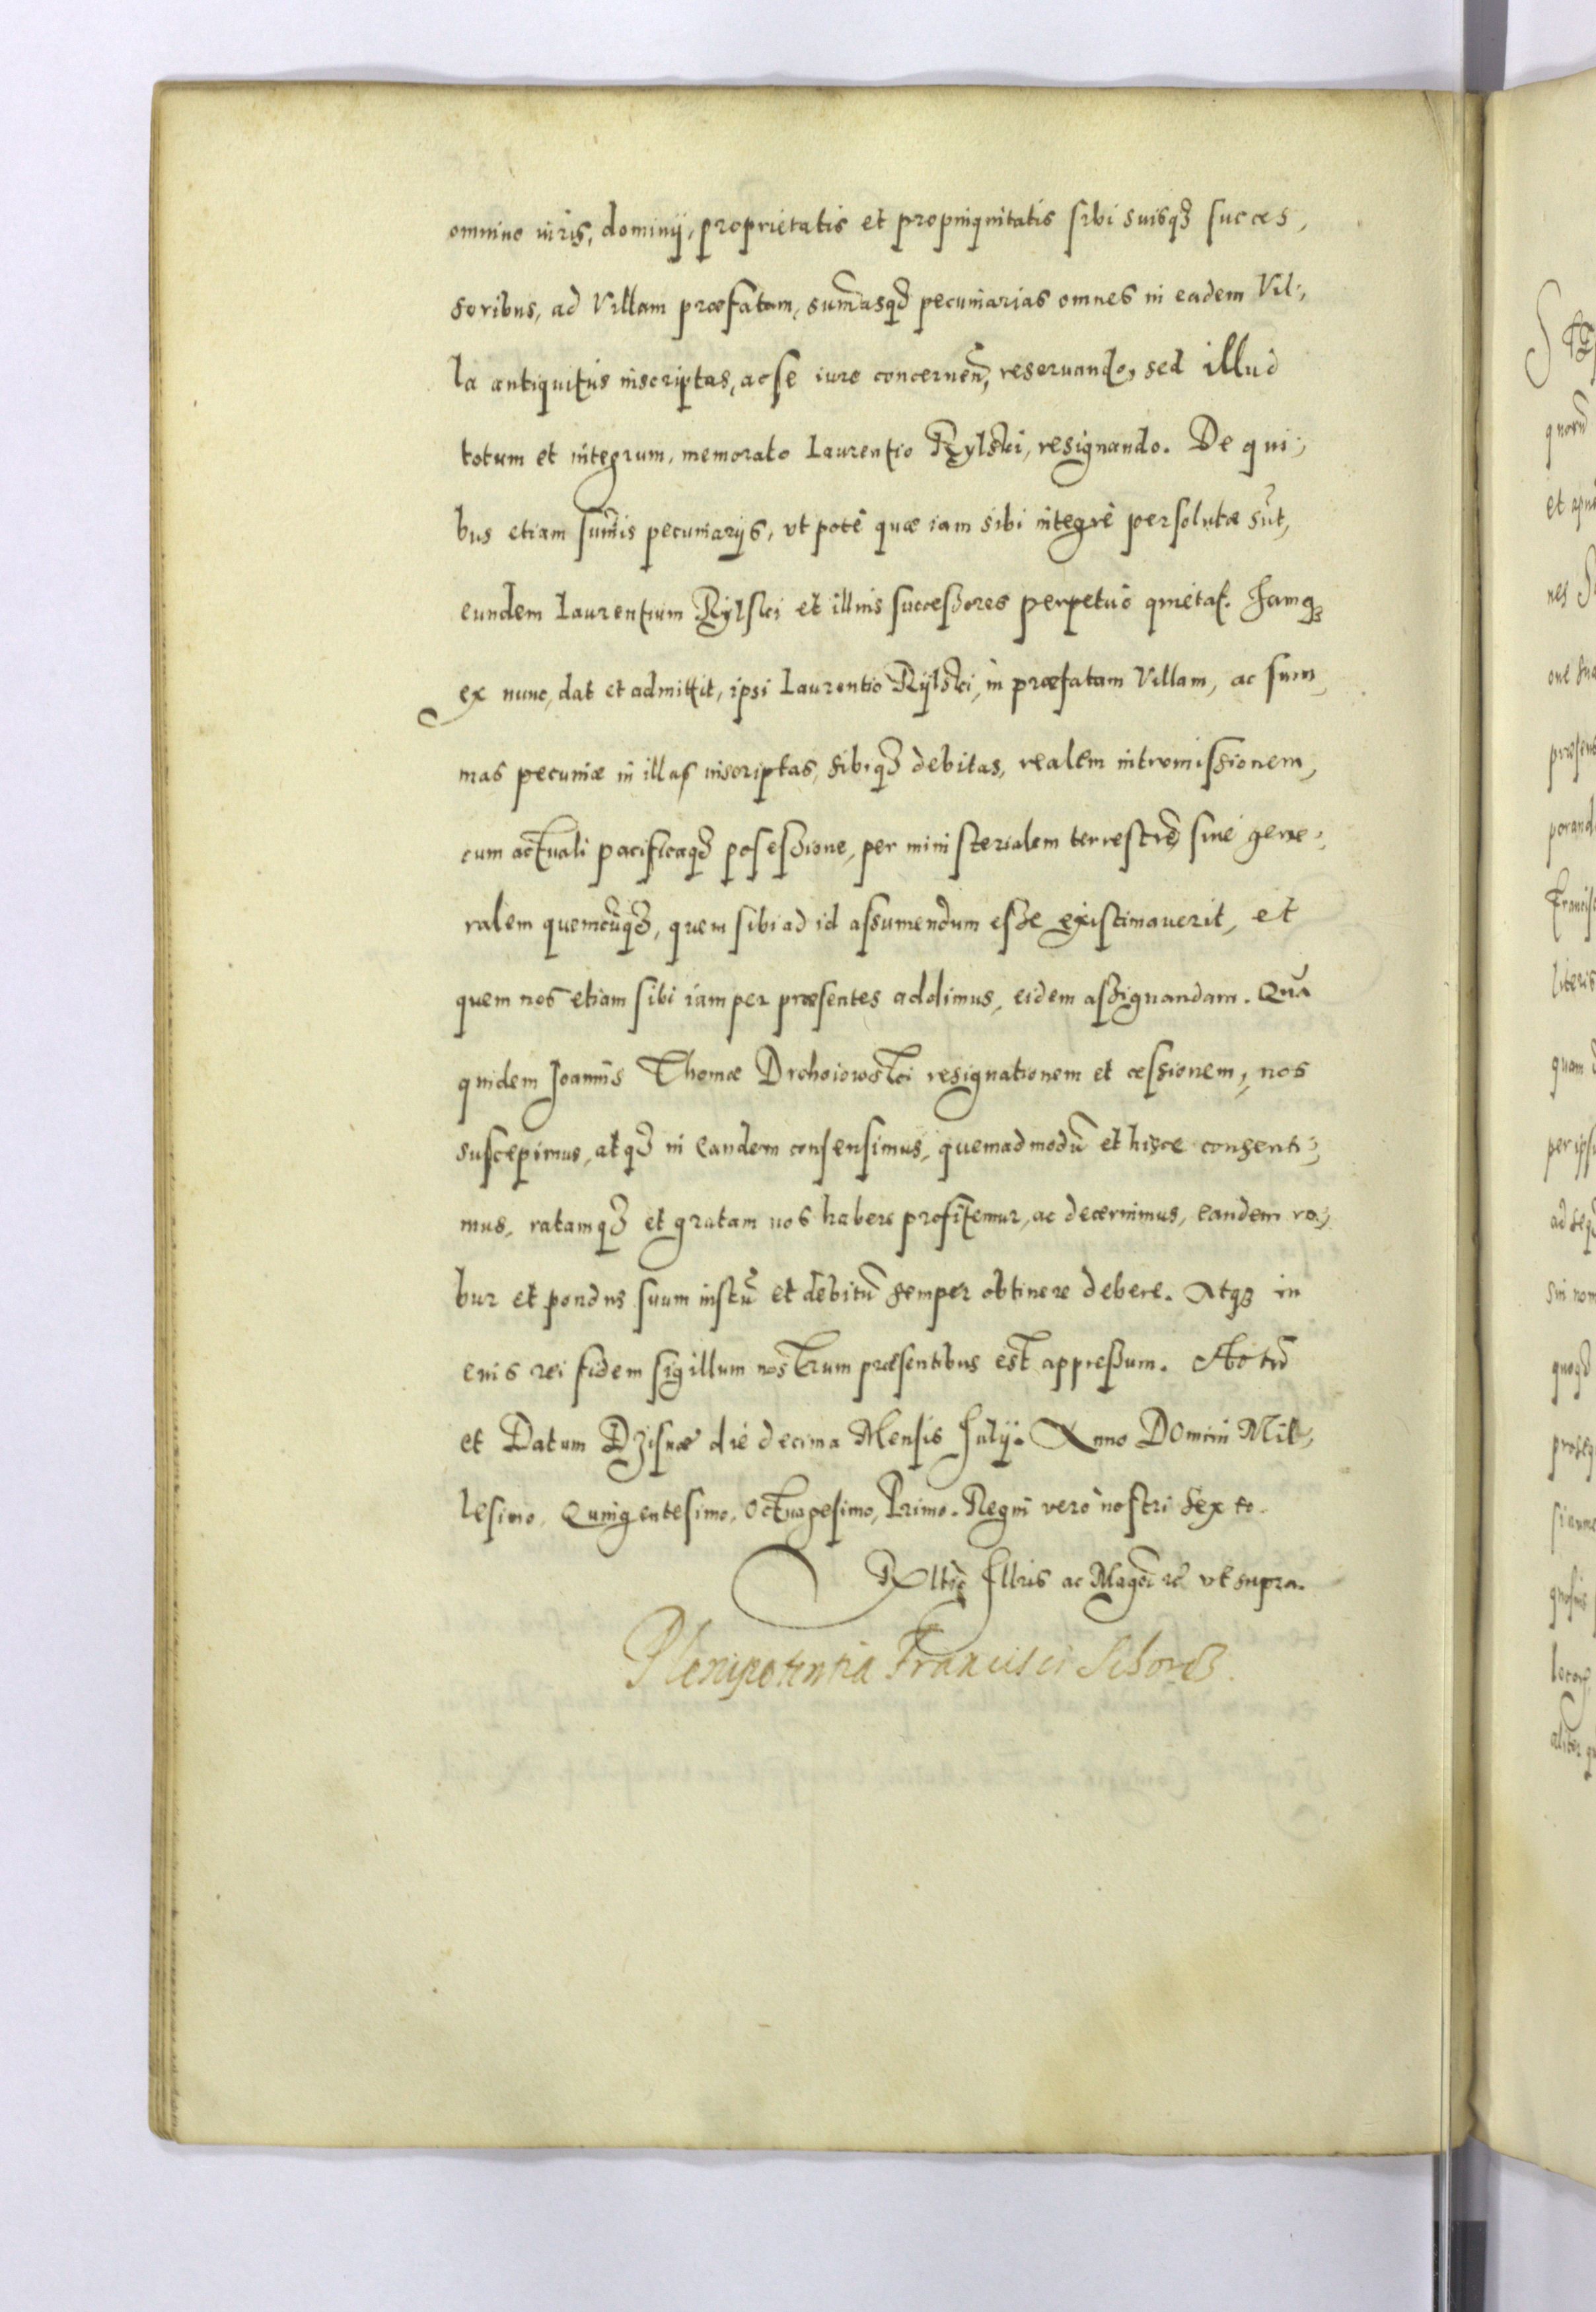 omnino iuris, dominij, proprietatis et propinquitatis sibi suisq3 succes,
soribus, ad Villam præfatam, sum̃asq3 pecuniarias omnes in eadem Vil,
la antiquitus inscriptas, ac se iure concernen̄, reseruando, sed illud
totum et integrum, memorato Laurentio Rylski, resignando. De qui,
bus etiam sum̄is pecuniarijs, vt potè quæ iam sibi integrè persolutæ sūt,
eundem Laurentium Rylski et illius successores perpetuò quietat. Iamq3
ex nunc, dat et admittit, ipsi Laurentio Rylski, in præfatam Villam, ac sum,
mas pecuniæ in illas inscriptas, sibiq3 debitas, realem intromissionem,
cum actuali pacificaq3 possessione, per ministerialem terrestrē, siuè gene,
ralem quemcūq3, quem sibi ad id assumendum esse existimauerit, et
quem nos etiam sibi iam per præsentes addimus, eidem assignandam. Quā
quidem Joannis Thomæ Drohoiowski resignationem et cessionem, nos
suscepimus, atq3 in eandem consensimus, quemadmodū et hisce consenti,
mus, ratamq3 et gratam nos habere profitemur, ac decernimus, eandem ro,
bur et pondus suum iustū et debitū semper obtinere debere. Atq3 in
cuis rei fidem sigillum nostrum præsentibus est appressum. Actū
et Datum Dzisnæ die decima Mensis Julij. Anno Domini Mil,
lesimo, Quingentesimo, Octuagesimo, Primo. Regni verò nostri Sexto.
Rltiẽ Illris ac Magci rc̃ vt supra.
Plenipotentia Francisci Schorcz.